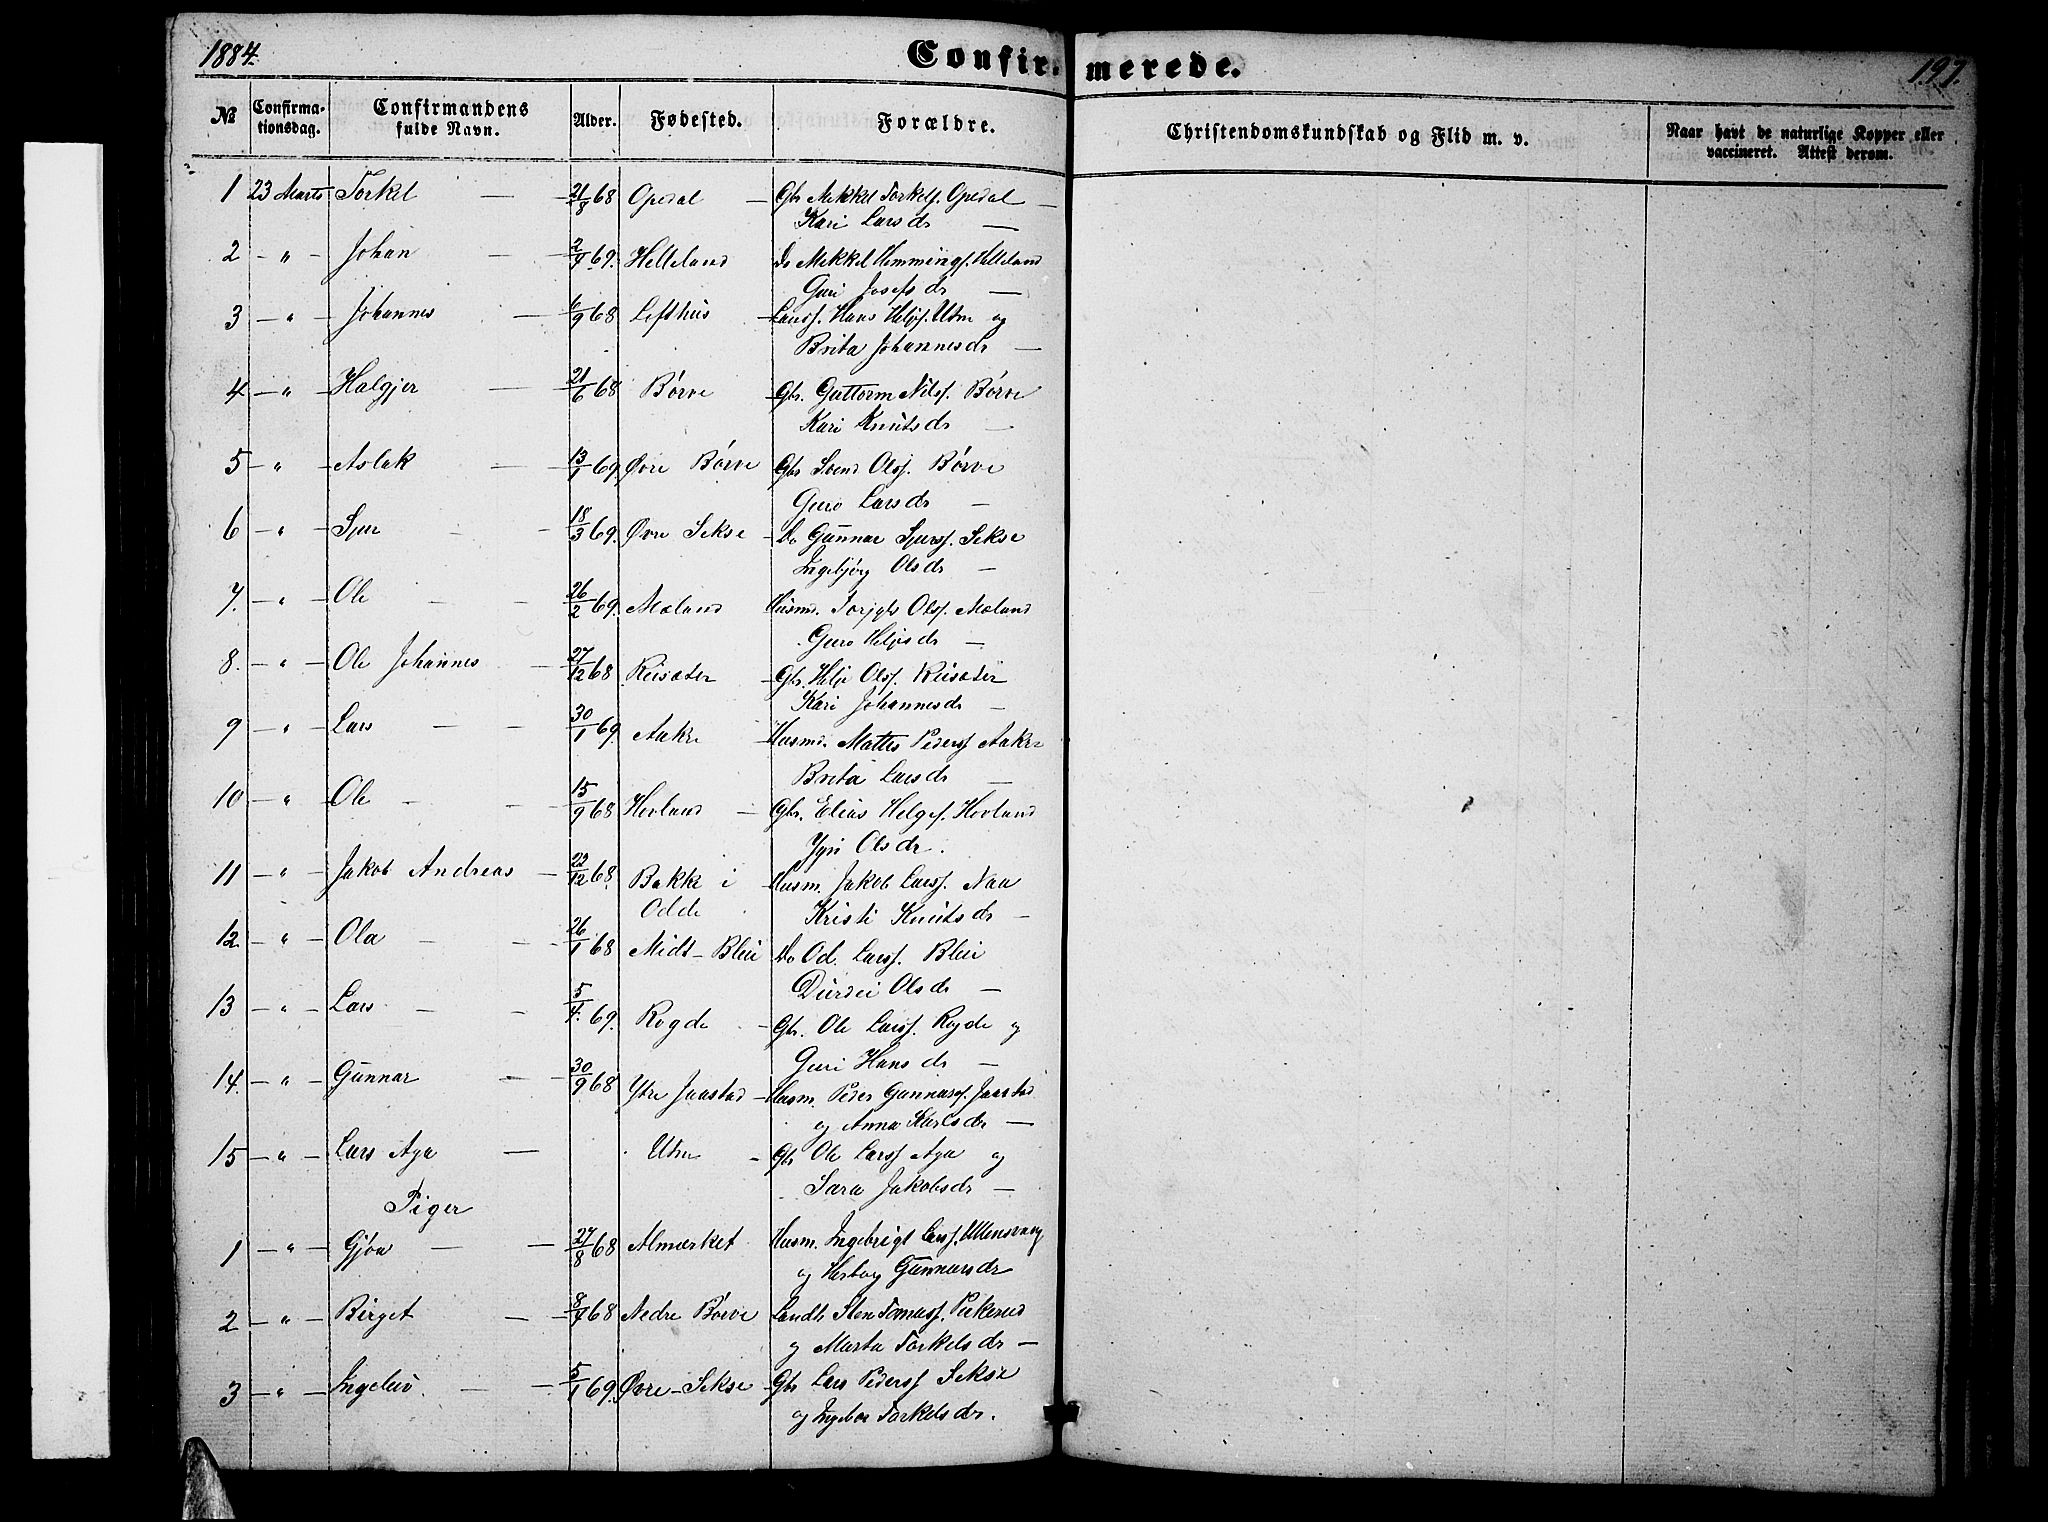 1884.
Confirmerede.
197.
№ Confirmationsdag. Confirmandens fulde Navn. Alder. Fødested. Forældre. Christendomskundskab og Flid m. v. Naar havt de naturlige Kopper eller vaccineret. Attest derom.
1 23 Marts Torkel — 21/8 68 Opedal — Gbr Mikkel Torkels. Opedal —
Kari Larsdr —
2 - " - Johan 2/4 69. Helleland do Mikkel Hemmings. Helleland
Guri Josefsdr —
3 - " - Johannes — 6/9 68 Lofthus — Larss. Hans Heljes. Utne og
Brita Johannesdr —
4 - " - Halgjer — 21/6 68 Børve — Gbr. Guttorm Nilss. Børve
Kari Knutsdr —
5 - " - Aslak — 13/1 69. Øvre Børve Gbr Svend Olss. Børve
Guro Larsdr —
6 - " - Sjur — 18/3 69. Øvre Sekse — Do Gunnar Sjurss. Sekse
Ingebjørg Olsdr —
7. - " - Ole — 26/2 69. Mæland Husmd. Torjgls Olss. Mæland
Guro Heljesdr —
8. - " - Ole Johannes — 27/12 68 Reisæter — Gbr. Helje Olss. Reisæter
Kari Johannesdr —
9 - " - Lars — 30/1 69. Aakre Husmd. Mattes Pederss Aakre
Brita Larsdr —
10 - " - Ole — 15/9 68 Hovland — Gbr. Elias Helges. Hovland
Jyri Olsdr.
11 - " - Jakob Andreas — 22/12 68. Bakke i Husm. Jakob Larss. Naa
Odde Kristi Knutsdr —
12. - " - Ola — 26/1 68 Midt-Bleie Do Od. Larss. Bleie
Durdei Olsdr —
13 - " - Lars — 5/4. 69. Rogde — Gbr. Ole Larss. Rogde og
Guri Hansdr —
14. - " - Gunnar — 30/9 68 Ytre Jaastad — Husm. Peder Gunnarss. Jaastad
og Anna Karlsdr —
15 - " - Lars Aga — Utne — Gbr Ole Larss Aga og
Sara Jakobsdr —
Piger
1 - " - Gjøa — 27/8 68 Almærket Husm. Ingebrigt Larss. Ullensvang
og Herborg Gunnarsdr
2 - " - Birget — 8/7 68 Nedre Børve Landh. Sten Tomass. Pekerud
og Marta Torkelsdr —
3 - " - Ingeleiv. — 5/1 69. Øvre-Sekse — Gbr Lars Pederss Sekse
og Ingebor Torkelsdr.